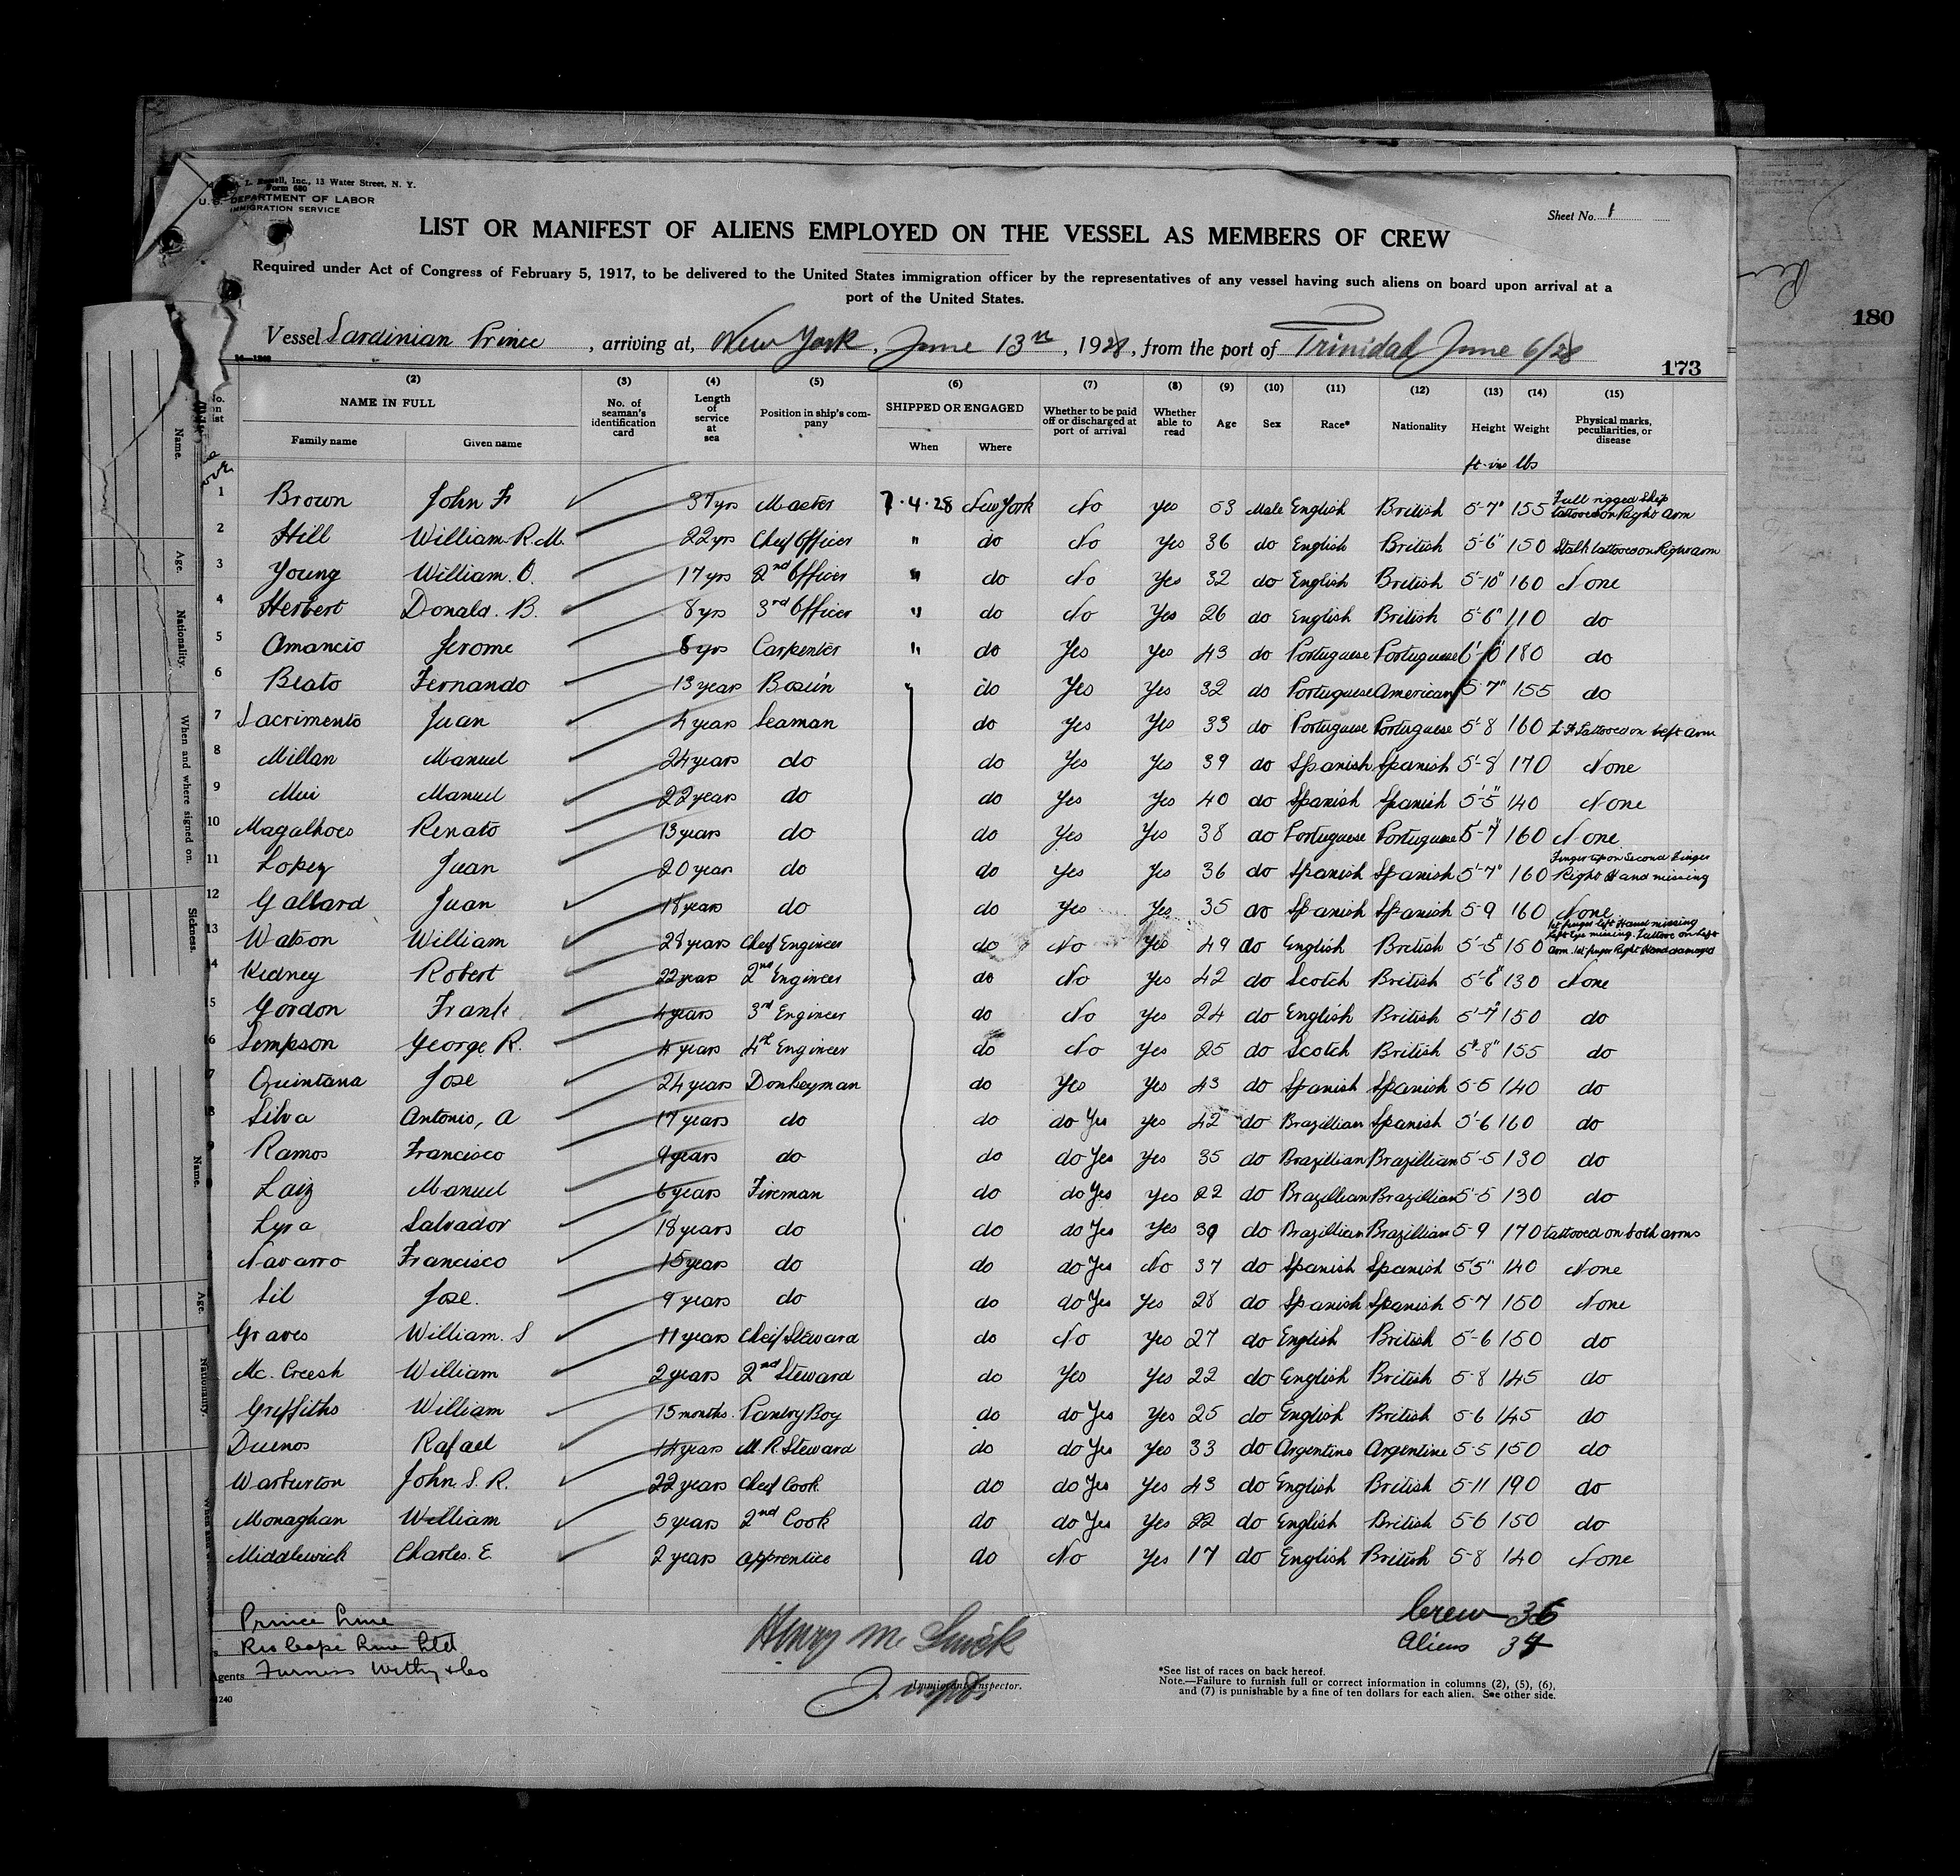 L. Russell, Inc., 13 Water Street, N. Y.
Form 680
U. S. DEPARTMENT OF LABOR
IMMIGRATION SERVICE
Sheet No. 1
LIST OR MANIFEST OF ALIENS EMPLOYED ON THE VESSEL AS MEMBERS OF CREW
Required under Act of Congress of February 5, 1917, to be delivered to the United States immigration officer by the representatives of any vessel having such aliens on board upon arrival at a
port of the United States.
180
Vessel Sardinian Prince, arriving at, New York, June 13th, 1928, from the port of Trinidad June 6/28
14-1240
173
(2) (3) (4) (5) (6) (7) (8) (9) (10) (11) (12) (13) (14) (15)
No. on list NAME IN FULL Family name Given name No. of seaman's identification card Length of service at sea Position in ship's company SHIPPED OR ENGAGED When Where Whether to be paid off or discharged at port of arrival Whether able to read Age Sex Race* Nationality Height Weight Physical marks, peculiarities, or disease
ft-ins lbs
1 Brown John F 37 yrs Master 7.4.28 New York No yes 53 Male English British 5-7" 155 Full rigged Ship tattooed on Right arm
2 Hill William R.M. 22 yrs Cheif Officer " do No Yes 36 do English British 5'-6" 150 Stalk tattooed on Right arm
3 Young William. O. 17 yrs 2nd Officer " do No Yes 32 do English British 5'-10" 160 None
4 Herbert Donald. B. 8 yrs 3rd Officer " do No Yes 26 do English British 5'-6" 110 do
5 Amancio Jerome 8 yrs Carpenter " do Yes Yes 43 do Portuguese Portuguese 6'-0" 180 do
6 Beato Fernando 13 years Bosun " do Yes Yes 32 do Portuguese American 5-7" 155 do
7 Sacrimento Juan 4 years Seaman do Yes Yes 33 do Portuguese Portuguese 5'-8 160 tattooed on left arm
8 Millan Manuel 24 years do do Yes Yes 39 do Spanish Spanish 5'-8 170 None
9 Mui Manuel 22 years do do Yes Yes 40 do Spanish Spanish 5'-5" 140 None
10 Magalhoes Renato 13 years do do Yes Yes 38 do Portuguese Portuguese 5'-7" 160 None
11 Lopez Juan 20 years do do Yes Yes 36 do Spanish Spanish 5'-7" 160 Finger tip on Second Finger Right Hand missing
12 Gallard Juan 18 years do do Yes Yes 35 do Spanish Spanish 5-9 160 None
13 Watson William 28 years Cheif Engineer do No Yes 49 do English British 5'-5" 150 1st finger left Hand missing left Eye missing. Tattoo on left arm. 1st finger Right Hand damaged
14 Kidney Robert 22 years 2nd Engineer do No Yes 42 do Scotch British 5'-6" 130 None
5 Gordon Frank 4 years 3rd Engineer do No Yes 24 do English British 5'-7" 150 do
6 Sempson George R. 4 years 4th Engineer do No Yes 25 do Scotch British 5'-8" 155 do
7 Quintana Jose 24 years Donkeyman do Yes Yes 43 do Spanish Spanish 5-5 140 do
8 Silva Antonio, A 17 years do do do Yes Yes 42 do Brazillian Spanish 5'-6 160 do
9 Ramos Francisco 9 years do do do Yes Yes 35 do Brazillian Brazillian 5'-5 130 do
Laiz Manuel 6 years Fireman do do Yes Yes 22 do Brazillian Brazillian 5'-5 130 do
Lyra Salvador 18 years do do do Yes Yes 39 do Brazillian Brazillian 5-9 170 tattooed on both arms
Navarro Francisco 15 years do do do Yes No 37 do Spanish Spanish 5'5" 140 None
Sil Jose. 9 years do do do Yes Yes 28 do Spanish Spanish 5-7 150 None
Graves William. S 11 years Cheif Steward do No Yes 27 do English British 5'-6 150 do
Mc. Creesh William 2 years 2nd Steward do Yes Yes 22 do English British 5-8 145 do
Griffiths William 15 months. Pantry Boy do do Yes Yes 25 do English British 5-6 145 do
Duenos Rafael 14 years M.R. Steward do do Yes Yes 33 do Argentine Argentine 5-5 150 do
Warburton John. S. R. 22 years Cheif Cook do do Yes Yes 43 do English British 5-11 190 do
Monaghan William 5 years 2nd Cook do do Yes Yes 22 do English British 5-6 150 do
Middlewick Charles. E. 2 years apprentice do No Yes 17 do English British 5-8 140 None
Prince Line
Rio Cape Line Ltd
Agents Furness Withy & Co
1240
Immigrant Inspector.
Crew 36
Aliens 34
*See list of races on back hereof.
Note.—Failure to furnish full or correct information in columns (2), (5), (6),
and (7) is punishable by a fine of ten dollars for each alien. See other side.
Name.
Age.
Nationality.
When and where signed on.
Sickness.
Name.
Age.
Nationality.